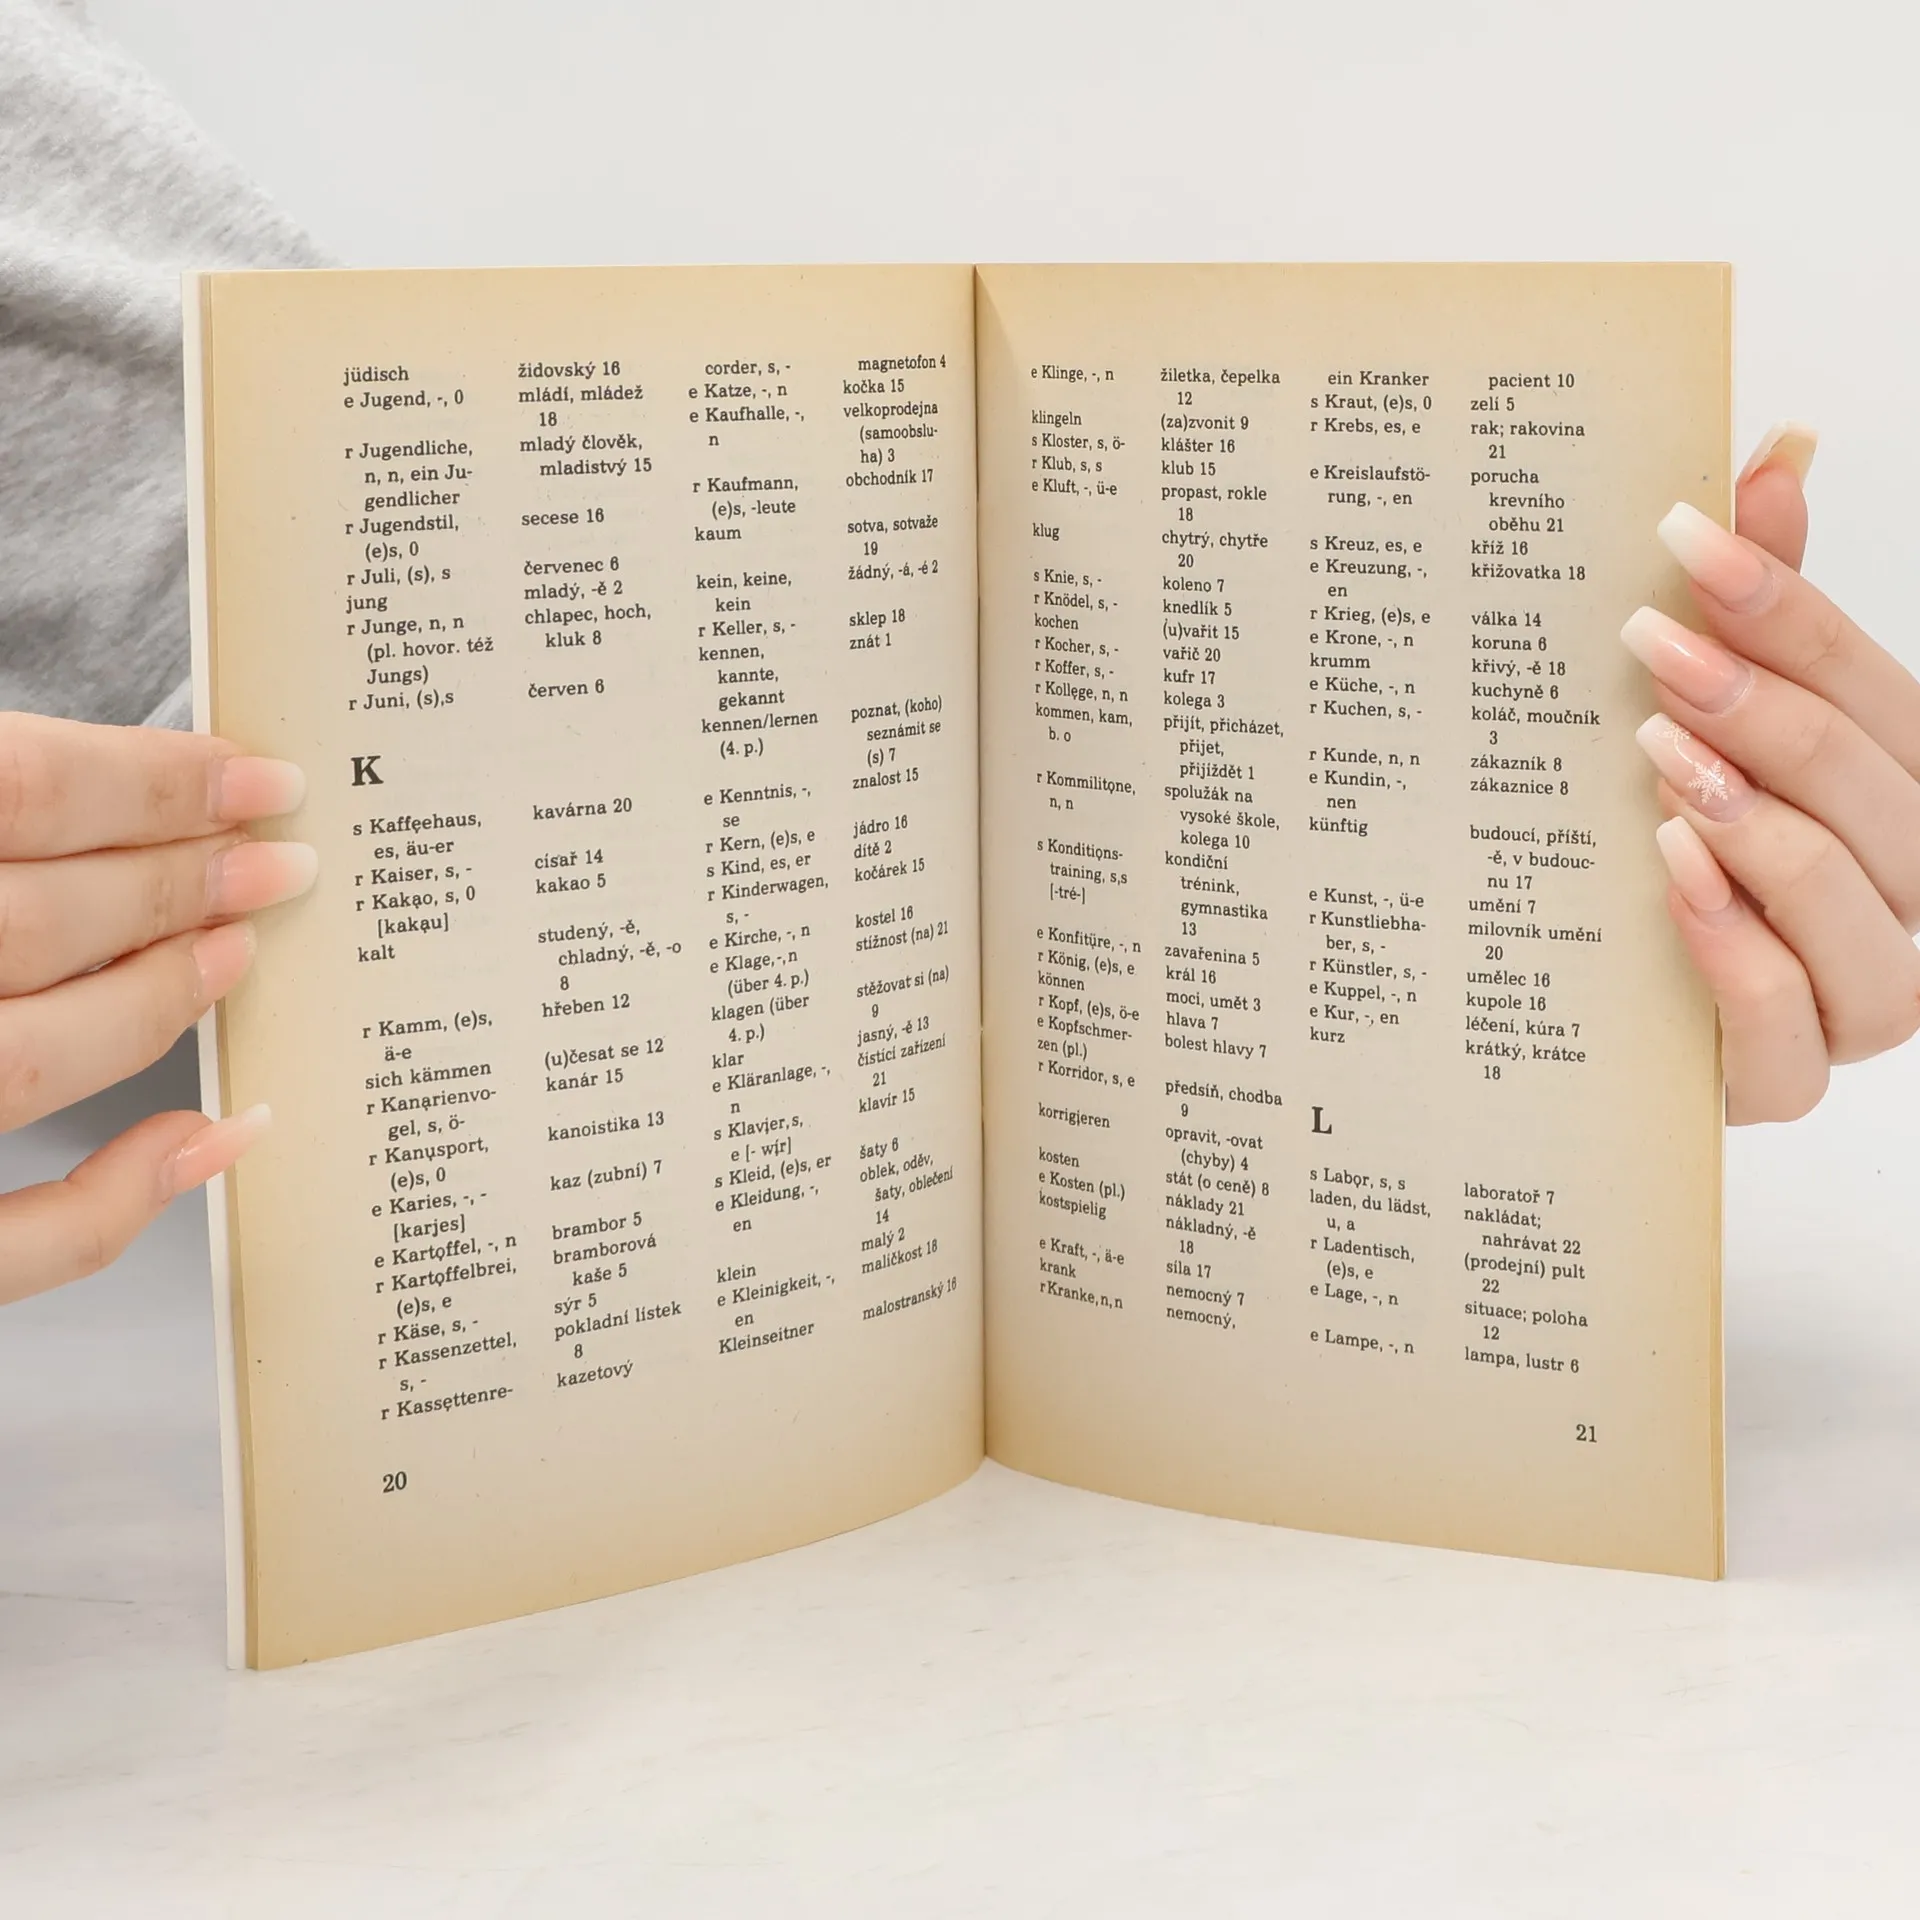 jüdisch židovský 16
e Jugend, -, 0 mládí, mládež
18
r Jugendliche, mladý člověk,
n, n, ein Ju- mladistvý 15
gendlicher
r Jugendstil, secese 16
(e)s, 0
r Juli, (s), s červenec 6
jung mladý, -ě 2
r Junge, n, n chlapec, hoch,
(pl. hovor. též kluk 8
Jungs)
r Juni, (s),s červen 6
K
s Kaffęehaus, kavárna 20
es, äu-er
r Kaiser, s, - císař 14
r Kakąo, s, 0 kakao 5
[kakąu]
kalt studený, -ě,
chladný, -ě, -o
8
r Kamm, (e)s, hřeben 12
ä-e
sich kämmen (u)česat se 12
r Kanąrienvo- kanár 15
gel, s, ö-
r Kanųsport, kanoistika 13
(e)s, 0
e Karies, -, - kaz (zubní) 7
[karjes]
e Kartǫffel, -, n brambor 5
r Kartǫffelbrei, bramborová
(e)s, e kaše 5
r Käse, s, - sýr 5
r Kassenzettel, pokladní lístek
s, - 8
r Kassęttenre- kazetový
20
corder, s, - magnetofon 4
e Katze, -, n kočka 15
e Kaufhalle, -, velkoprodejna
n (samoobslu-
ha) 3
r Kaufmann, obchodník 17
(e)s, -leute
kaum sotva, sotvaže
19
kein, keine, žádný, -á, -é 2
kein
r Keller, s, - sklep 18
kennen, znát 1
kannte,
gekannt
kennen/lernen poznat, (koho)
(4. p.) seznámit se
(s) 7
e Kenntnis, -, znalost 15
se
r Kern, (e)s, e jádro 16
s Kind, es, er dítě 2
r Kinderwagen, kočárek 15
s, -
e Kirche, -, n kostel 16
e Klage,-,n stížnost (na) 21
(über 4. p.)
klagen (über stěžovat si (na)
4. p.) 9
klar jasný, -ě 13
e Kläranlage, -, čisticí zařízení
n 21
s Klavįer,s, klavír 15
e [- wįr]
s Kleid, (e)s, er šaty 6
e Kleidung, -, oblek, oděv,
en šaty, oblečení
14
klein malý 2
e Kleinigkeit, -, maličkost 18
en
Kleinseitner malostranský 16
e Klinge, -, n žiletka, čepelka
12
klingeln (za)zvonit 9
s Kloster, s, ö- klášter 16
r Klub, s, s klub 15
e Kluft, -, ü-e propast, rokle
18
klug chytrý, chytře
20
s Knie, s, - koleno 7
r Knödel, s, - knedlík 5
kochen (u)vařit 15
r Kocher, s, - vařič 20
r Koffer, s, - kufr 17
r Kollęge, n, n kolega 3
kommen, kam, přijít, přicházet,
b. o přijet,
přijíždět 1
r Kommilitǫne, spolužák na
n, n vysoké škole,
kolega 10
s Konditiǫns- kondiční
training, s,s trénink,
[-tré-] gymnastika
13
e Konfitüre, -, n zavařenina 5
r König, (e)s, e král 16
können moci, umět 3
r Kopf, (e)s, ö-e hlava 7
e Kopfschmer- bolest hlavy 7
zen (pl.)
r Korridor, s, e předsíň, chodba
9
korrigįeren opravit, -ovat
(chyby) 4
kosten stát (o ceně) 8
e Kosten (pl.) náklady 21
kostspielig nákladný, -ě
18
e Kraft, -, ä-e síla 17
krank nemocný 7
rKranke,n,n nemocný,
ein Kranker pacient 10
s Kraut, (e)s, 0 zelí 5
r Krebs, es, e rak; rakovina
21
e Kreislaufstö- porucha
rung, -, en krevního
oběhu 21
s Kreuz, es, e kříž 16
e Kreuzung, -, křižovatka 18
en
r Krieg, (e)s, e válka 14
e Krone, -, n koruna 6
krumm křivý, -ě 18
e Küche, -, n kuchyně 6
r Kuchen, s, - koláč, moučník
3
r Kunde, n, n zákazník 8
e Kundin, -, zákaznice 8
nen
künftig budoucí, příští,
-ě, v budouc-
nu 17
e Kunst, -, ü-e umění 7
r Kunstliebha- milovník umění
ber, s, - 20
r Künstler, s, - umělec 16
e Kuppel, -, n kupole 16
e Kur, -, en léčení, kúra 7
kurz krátký, krátce
18
L
s Labǫr, s, s laboratoř 7
laden, du lädst, nakládat;
u, a nahrávat 22
r Ladentisch, (prodejní) pult
(e)s, e 22
e Lage, -, n situace; poloha
12
e Lampe, -, n lampa, lustr 6
21